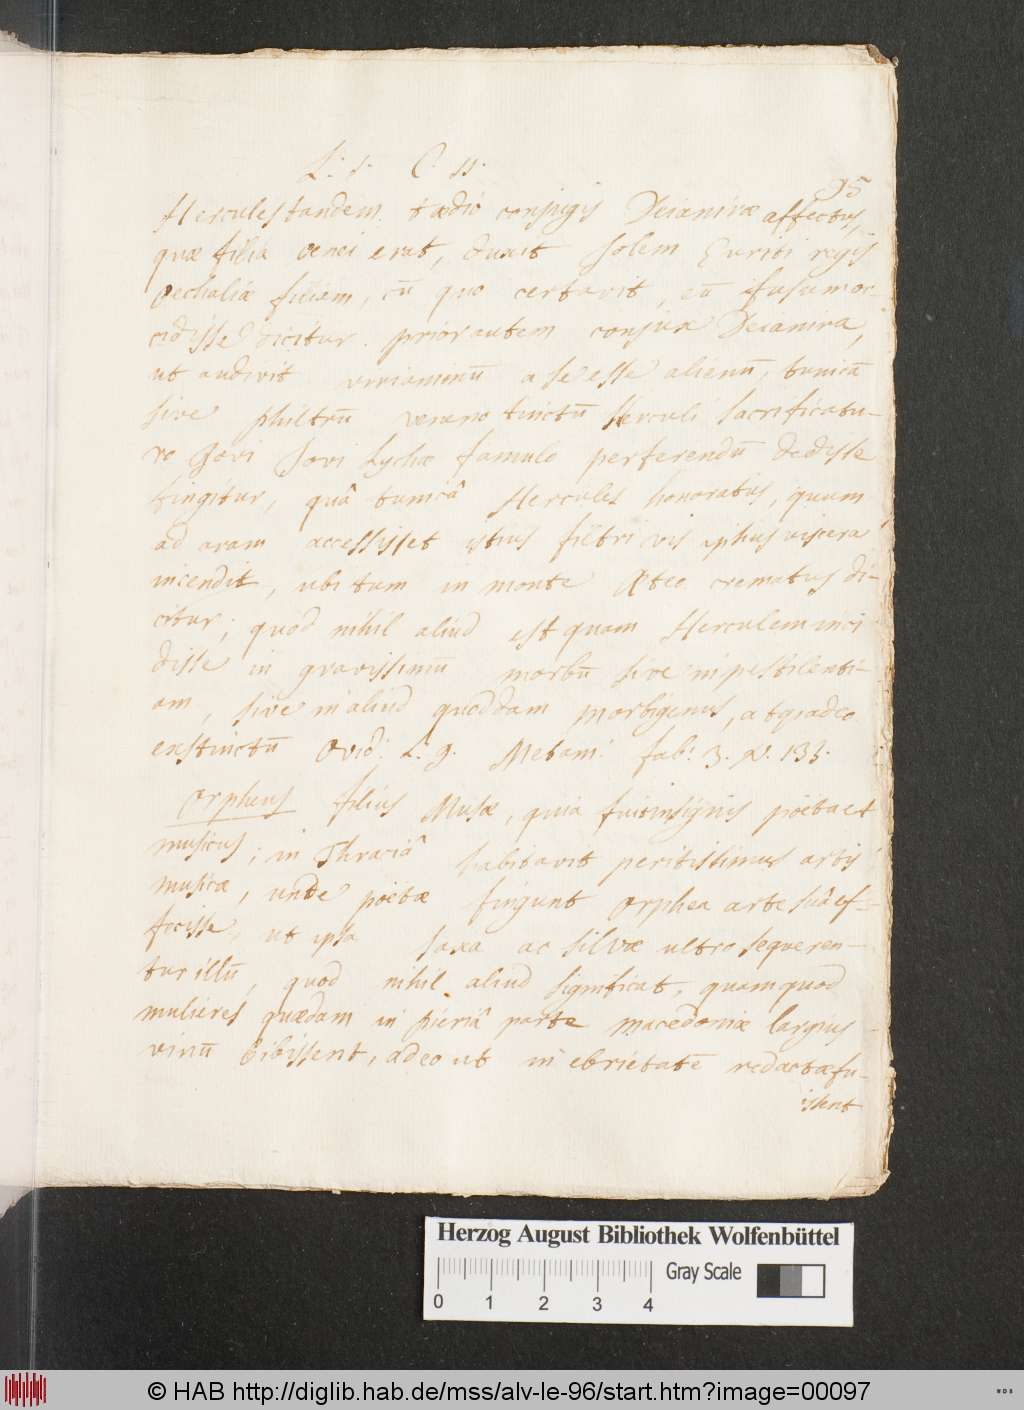 L. 1. C. 11.
95
Hercules tandem tædio conjugis Deianiræ affectus,
quæ filia Oenei erat, duxit Jolem Euriti regis
Oechaliæ filiam, cū quo certavit, eū
cidisse dicitur. prior autem conjux Deianira,
ut audivit viri amorē a se esse alienū, tunicā
sive philtrū veneno tinctū Herculi sacrificatu-
ro Jovi Jovi Lychæ famulo perferendū dedisse
fingitur, quâ tunicâ Hercules honoratus, quum
ad aram accessisset istius filtri vis ipsius viscera
incendit, ubi tum in monte Æteo crematus di-
citur; quod nihil aliud est quam Herculem inci-
disse in gravissimū morbū sive in pestilenti-
am, sive in aliud quoddam morbi genus, atq; adeo
exstinctū Ovid: L. 9. Metam: fab: 3. V. 133.
Orpheus filius Musæ, quia fuit insignis poëta et
musicus; in Thraciâ habitavit peritissimus artis
musicæ, unde poëtæ fingunt Orphea arte suâ ef-
fecisse, ut ipsa saxa ac silvæ ultro sequeren-
tur illū, quod nihil aliud significat, quam quod
mulieres quædam in Pieriâ parte Macedoniæ largius
vinū bibissent, adeo ut in ebrietatē redactæ fu-
issent
Herzog August Bibliothek Wolfenbüttel
Gray Scale
0 1 2 3 4
© HAB http://diglib.hab.de/mss/alv-le-96/start.htm?image=00097